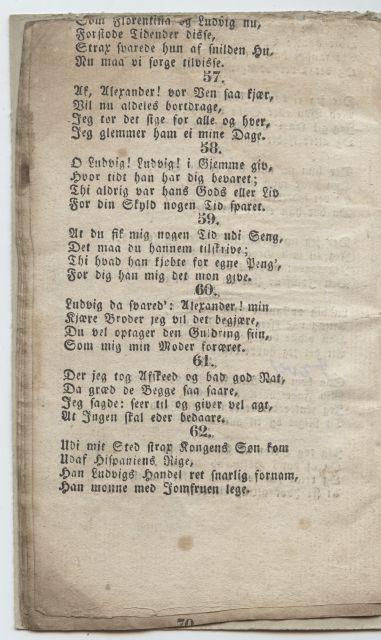 Som Florentina og Ludvig nu,
Forstode Tidender disse,
Strax svarede hun af snilden Hu,
Nu maa vi sørge tilvisse.
57.
Ak, Alexander! vor Ven saa kjær,
Vil nu aldeles bortdrage,
Jeg tør det sige for alle og hver,
Jeg glemmer ham ei mine Dage.
58.
O Ludvig! Ludvig! i Gjemme giv,
Hvor tidt han har dig bevaret;
Thi aldrig var hans Gods eller Liv
For din Skyld nogen Tid sparet.
59.
At du fik mig nogen Tid udi Seng,
Det maa du hannem tilskrive;
Thi hvad han kjøbte for egne Peng',
For dig han mig det mon give.
60.
Ludvig da svared': Alexander! min
Kjære Broder jeg vil det begjære,
Du vel optager den Guldring fiin,
Som mig min Moder foræret.
61.
Der jeg tog Afskeed og bad god Nat,
Da græd de Begge saa saare,
Jeg sagde: seer til og giver vel agt,
At Ingen skal eder bedaare.
62.
Udi mit Sted strax Kongens Søn kom
Udaf Hispaniens Rige,
Han Ludvigs Handel ret snarlig fornam,
Han monne med Jomfruen lege.
70